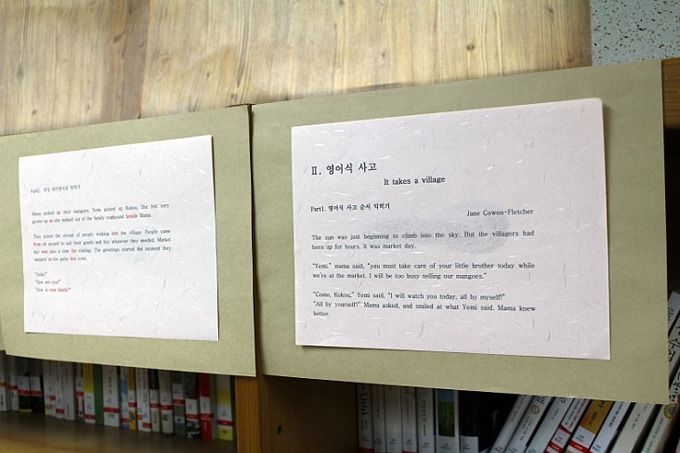 Mama picked up their mangoes, Yemi picked up Kokou. She felt very
grown-up as she walked out of the family compound beside Mama.
They joined the stream of people walking into the village. People came
from all around to sell their goods and buy whatever they needed. Market
day was also a time for visiting. The greetings started the moment they
stepped on the path into town.
"Hello!"
"How are you?"
"How is your family?"
II. 영어식 사고
It takes a village
Part1. 영어식 사고 순서 익히기
Jane Cowen-Fletcher
The sun was just beginning to climb into the sky. But the villagers had
been up for hours. It was market day.
"Yemi," mama said, "you must take care of your little brother today while
we're at the market. I will be too busy selling our mangoes."
"Come, Kokou," Yemi said. "I will watch you today, all by myself!"
"All by yourself?" Mama asked, and smiled at what Yemi said. Mama knew
better.